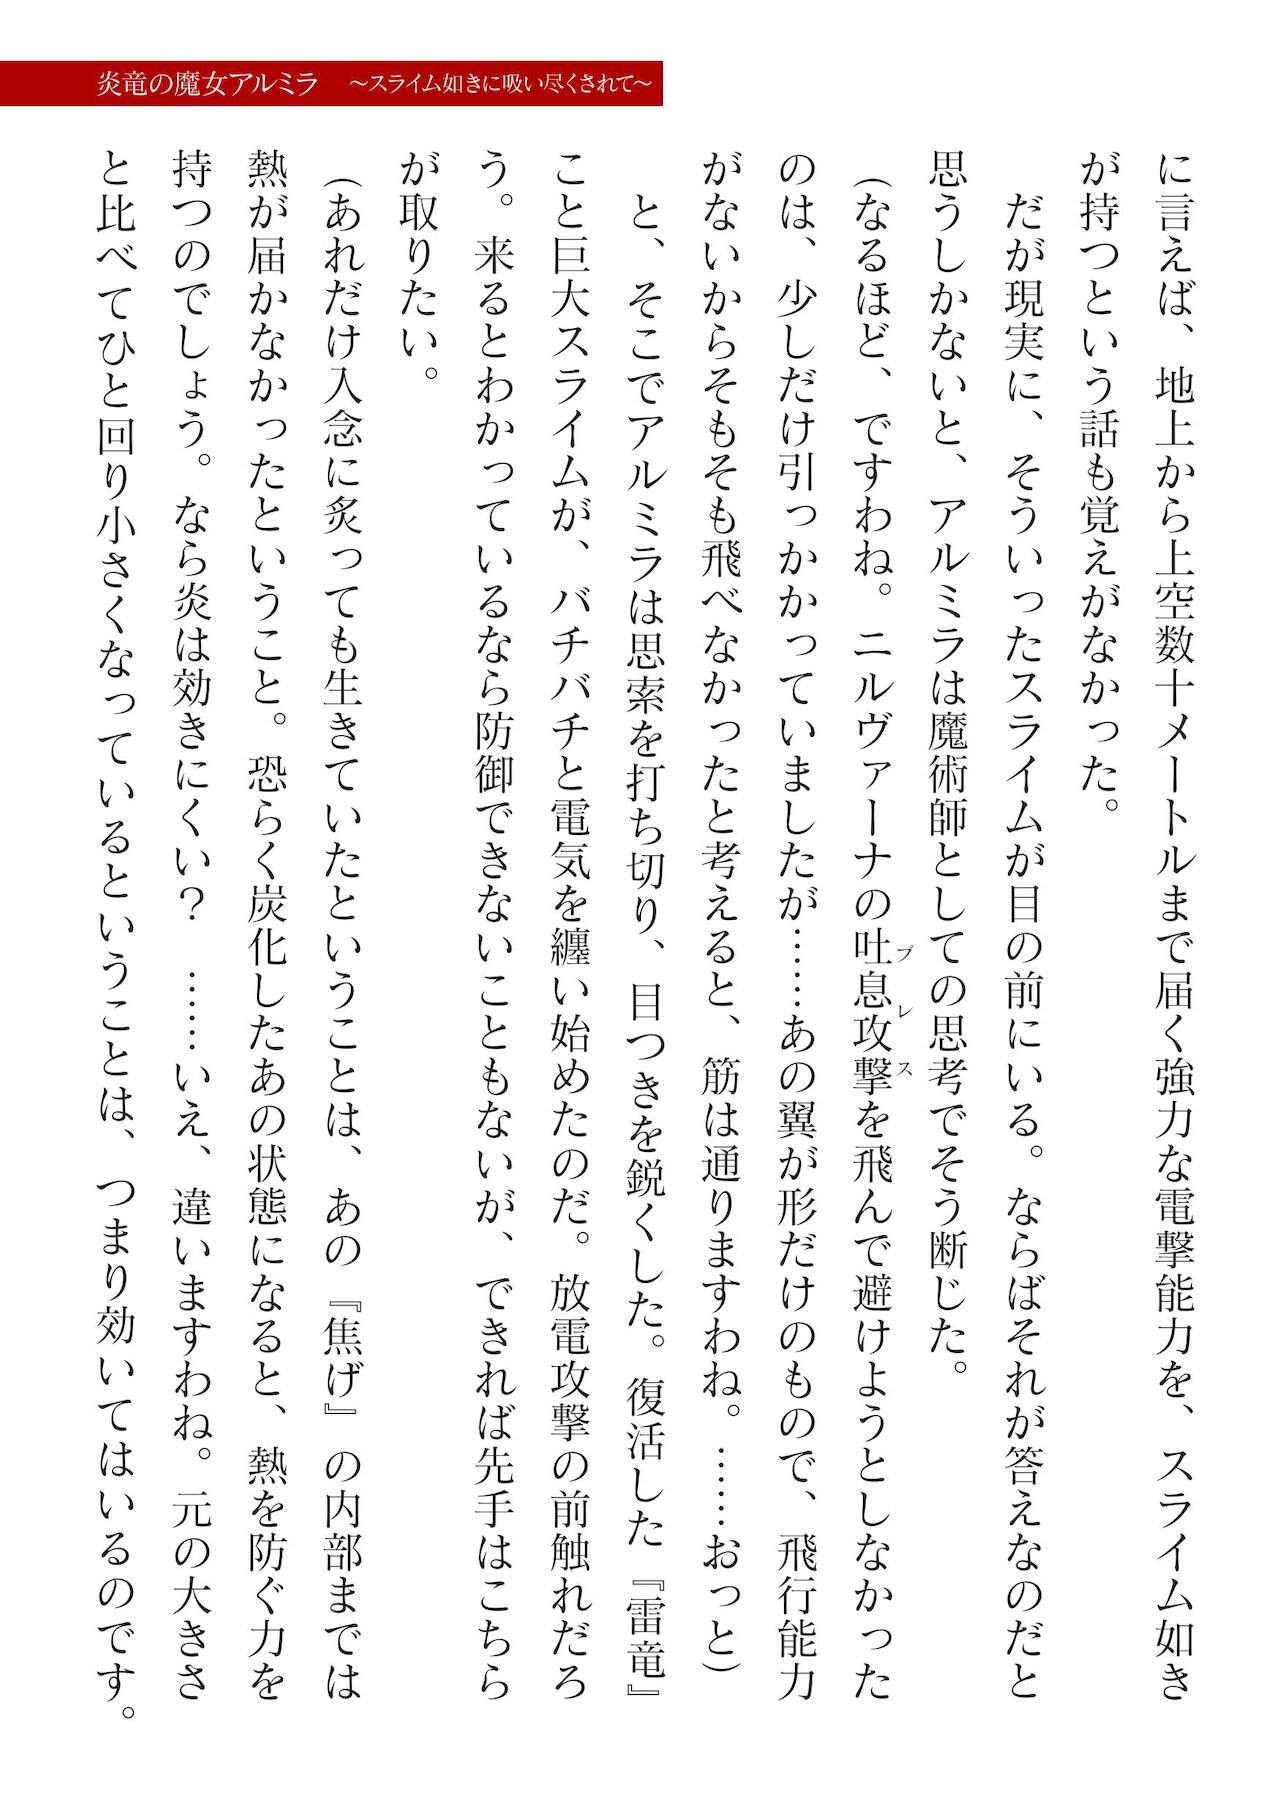 炎竜の魔女アルミラ　～スライム如きに吸い尽くされて～
に言えば、地上から上空数十メートルまで届く強力な電撃能力を、スライム如き
が持つという話も覚えがなかった。
　だが現実に、そういったスライムが目の前にいる。ならばそれが答えなのだと
思うしかないと、アルミラは魔術師としての思考でそう断じた。
（なるほど、ですわね。ニルヴァーナの吐息攻撃ブレスを飛んで避けようとしなかった
のは、少しだけ引っかかっていましたが……あの翼が形だけのもので、飛行能力
がないからそもそも飛べなかったと考えると、筋は通りますわね。……おっと）
　と、そこでアルミラは思索を打ち切り、目つきを鋭くした。復活した『雷竜』
こと巨大スライムが、バチバチと電気を纏い始めたのだ。放電攻撃の前触れだろ
う。来るとわかっているなら防御できないこともないが、できれば先手はこちら
が取りたい。
（あれだけ入念に炙っても生きていたということは、あの『焦げ』の内部までは
熱が届かなかったということ。恐らく炭化したあの状態になると、熱を防ぐ力を
持つのでしょう。なら炎は効きにくい？　……いえ、違いますわね。元の大きさ
と比べてひと回り小さくなっているということは、つまり効いてはいるのです。